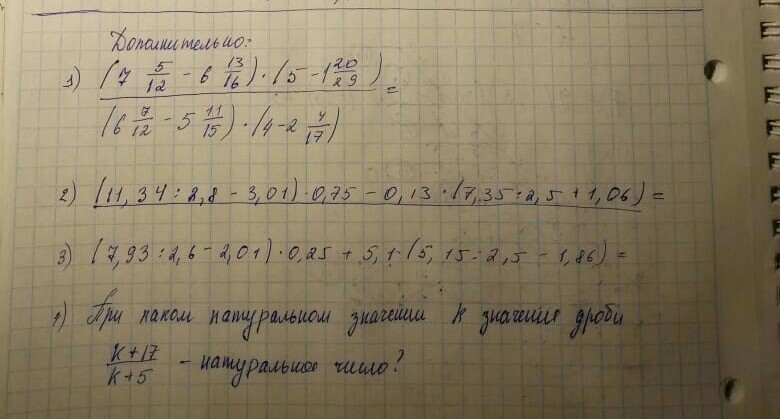 Дополнительно:
1) (7 5/12 - 6 13/16) · (5 - 1 20/29) =
(6 7/12 - 5 11/15) · (4 - 2 4/17)
2) (11,34 : 2,8 - 3,01) · 0,75 - 0,13 · (7,35 : 2,5 + 1,06) =
3) (7,93 : 2,6 - 2,01) · 0,25 + 5,1 · (5,15 : 2,5 - 1,86) =
4) При каком натуральном значении k значение дроби
k+17/k+5 - натуральное число?